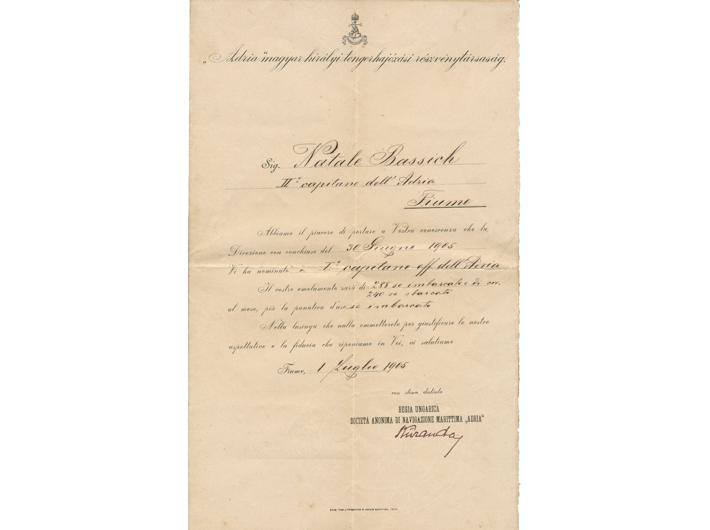 „Adria" magyar királyi tengerhajózási részvénytársaság.
Sig. Natale Bassich
II° capitano dell'Adria
Fiume
Abbiamo il piacere di portare a Vostra conoscenza che la
Direzione con conchiuso del 30 Giugno 1905
Vi ha nominato a I° capitano eff. dell'Adria
Il vostro emolumento sarà di 288 se imbarcato e di cor.
240 se sbarcato
al mese, più la panatica d'uso se imbarcato
Nella lusinga che nulla ommetterete per giustificare le nostre
aspettative e la fiducia che riponiamo in Voi, vi salutiamo
Fiume, 1 Luglio 1905
con stima distinta
REGIA UNGARICA
SOCIETÀ ANONIMA DI NAVIGAZIONE MARITTIMA „ADRIA"